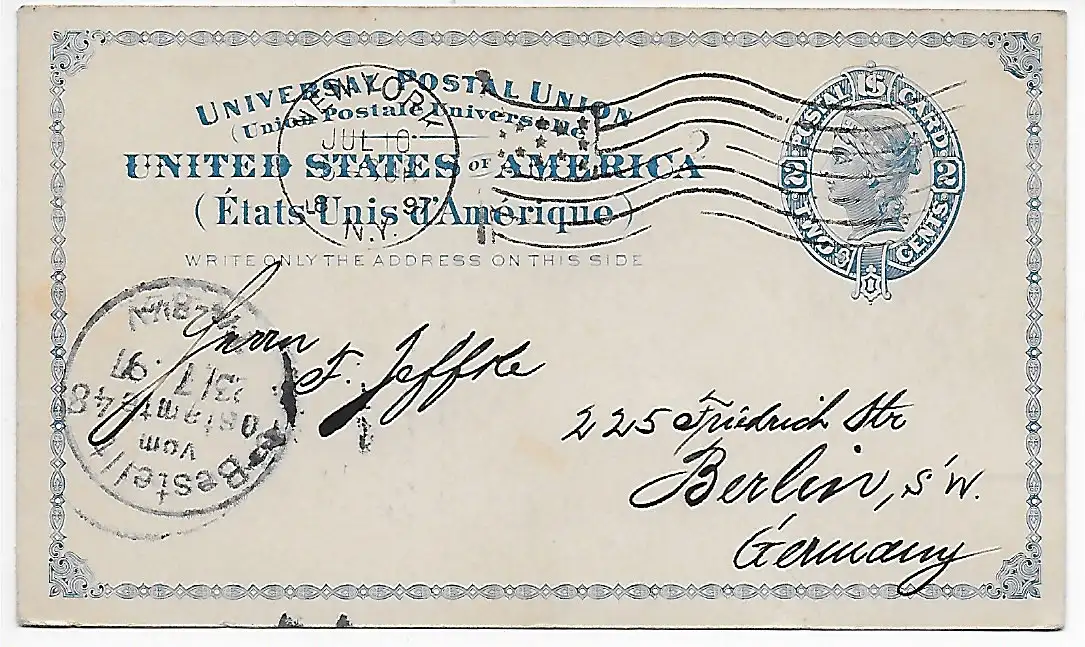 UNIVERSAL POSTAL UNION
(Union Postale Universelle)
UNITED STATES OF AMERICA
(États-Unis d'Amérique)
WRITE ONLY THE ADDRESS ON THIS SIDE
U.S. POSTAL CARD
2 2
TWO CENTS
NEW YORK
JUL 10
18 97
N.Y.
Herrn
F. Jeffke
225 Friedrich Str
Berlin, S.W.
Germany
Bestellt
vom
Postamte 48
23/7
97.